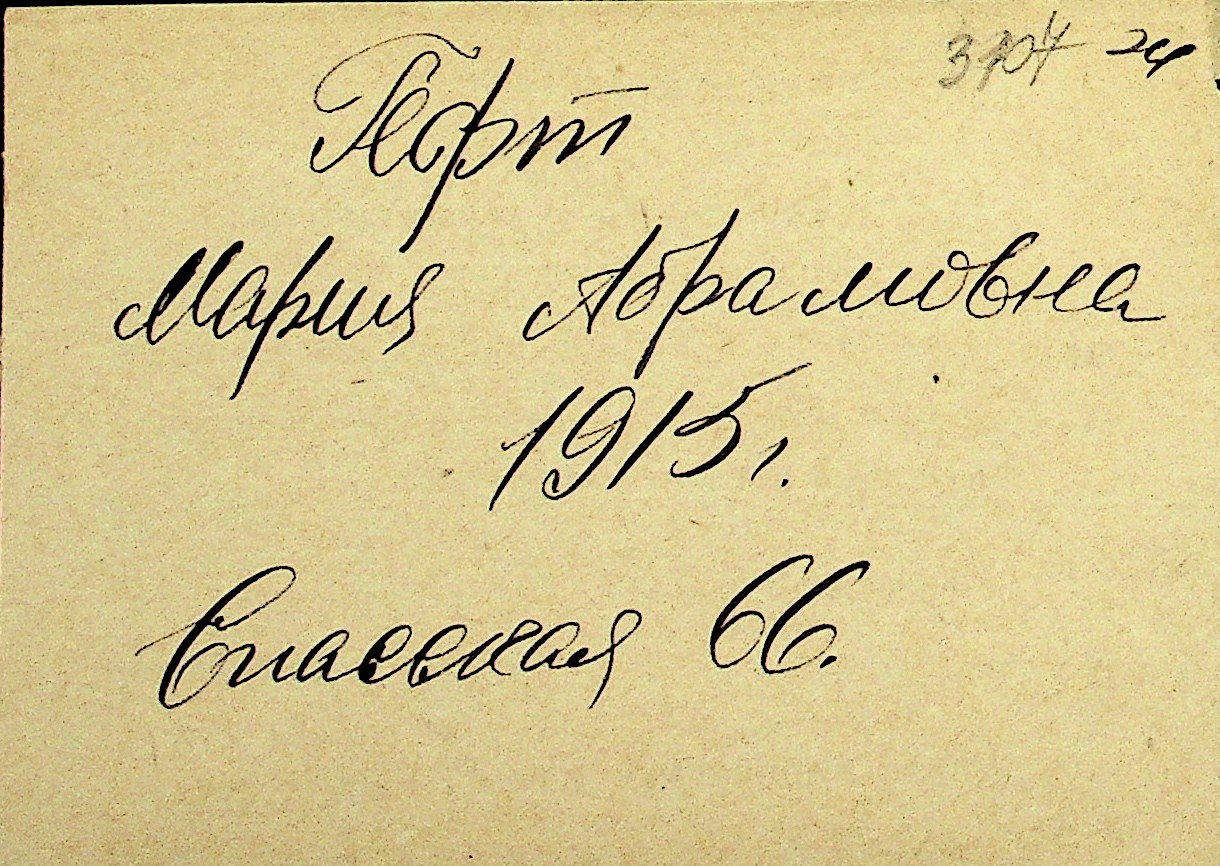 24
Гефт
Мария Абрамовна
1915 г.
Спасская 66.